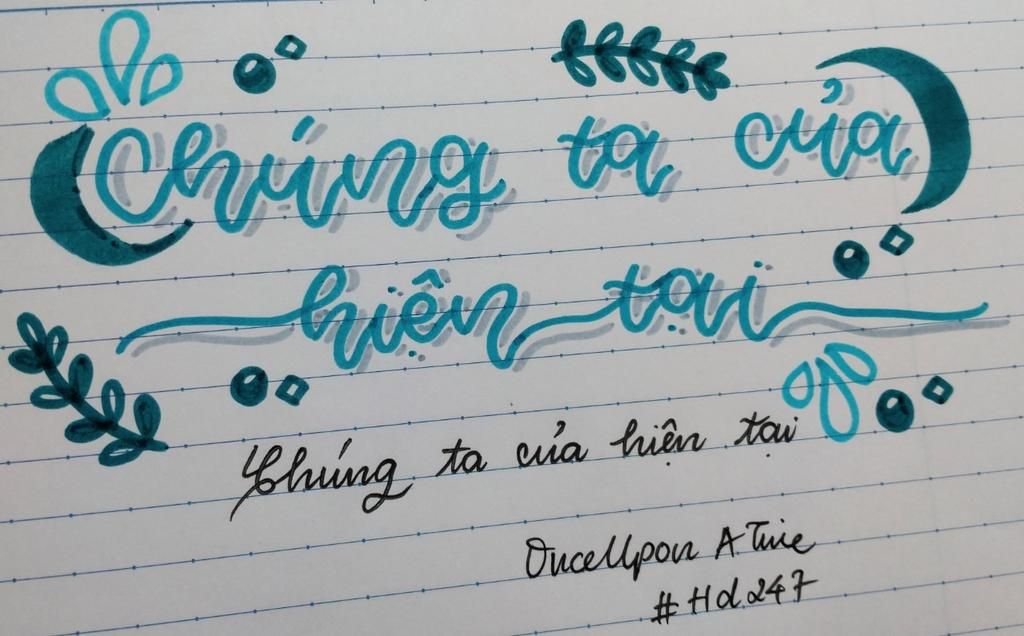 Chúng ta của
hiện tại
Chúng ta của hiện tại
OnceUpon A Time
#Hd247